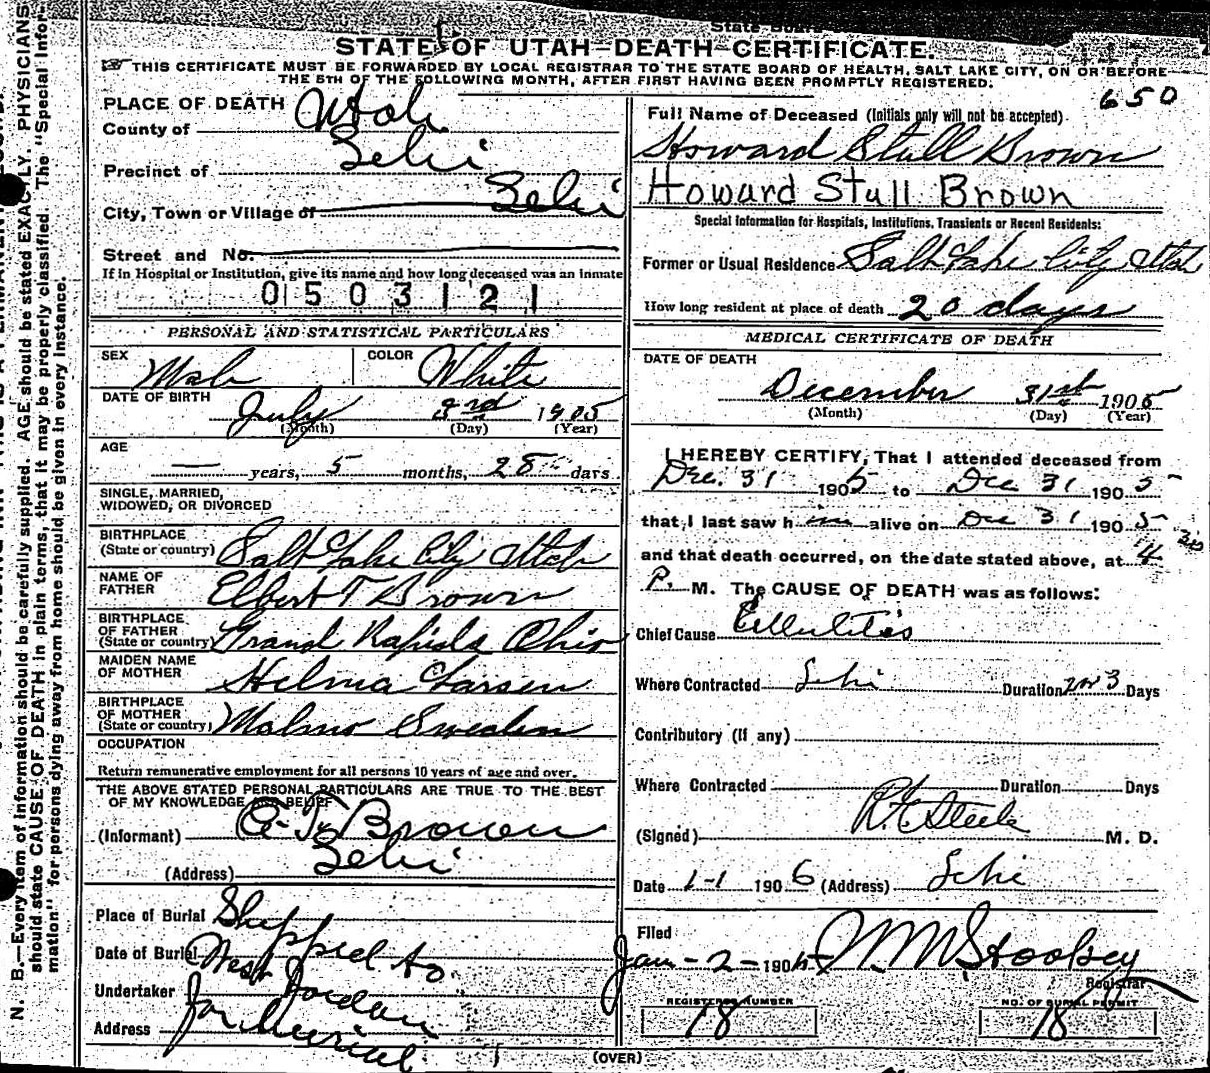 State Board
STATE OF UTAH—DEATH—CERTIFICATE.
THIS CERTIFICATE MUST BE FORWARDED BY LOCAL REGISTRAR TO THE STATE BOARD OF HEALTH, SALT LAKE CITY, ON OR BEFORE
THE 5TH OF THE FOLLOWING MONTH, AFTER FIRST HAVING BEEN PROMPTLY REGISTERED.
650
PLACE OF DEATH
County of Utah
Precinct of Lehi
City, Town or Village of Lehi
Street and No.
If in Hospital or Institution, give its name and how long deceased was an inmate
0503121
PERSONAL AND STATISTICAL PARTICULARS
SEX Male COLOR White
DATE OF BIRTH July 3rd 1905
(Month) (Day) (Year)
AGE
— years, 5 months, 28 days
SINGLE, MARRIED,
WIDOWED, OR DIVORCED
BIRTHPLACE
(State or country) Salt Lake City Utah
NAME OF
FATHER Elbert T Brown
BIRTHPLACE
OF FATHER
(State or country) Grand Rapids Ohio
MAIDEN NAME
OF MOTHER Helma Larsen
BIRTHPLACE
OF MOTHER
(State or country) Malmo Sweden
OCCUPATION
Return remunerative employment for all persons 10 years of age and over.
THE ABOVE STATED PERSONAL PARTICULARS ARE TRUE TO THE BEST
OF MY KNOWLEDGE AND BELIEF
(Informant) E. T. Brown
(Address) Lehi
Place of Burial Shipped to
Date of Burial West Jordan
Undertaker for Burial
Address
Full Name of Deceased (Initials only will not be accepted).
Howard Stull Brown
Howard Stull Brown
Special Information for Hospitals, Institutions, Transients or Recent Residents:
Former or Usual Residence Salt Lake City Utah
How long resident at place of death 20 days
MEDICAL CERTIFICATE OF DEATH
DATE OF DEATH
December 31st 1905
(Month) (Day) (Year)
I HEREBY CERTIFY, That I attended deceased from
Dec. 31 1905 to Dec 31 1905
that I last saw him alive on Dec 31 1905
and that death occurred, on the date stated above, at 4 30
P. M. The CAUSE OF DEATH was as follows:
Chief Cause Cellulitis
Where Contracted Lehi Duration 2 or 3 Days
Contributory (If any)
Where Contracted Duration Days
(Signed) Steele M. D.
Date 1-1 1906 (Address) Lehi
Filed
Jan-2-190 Stookey
Registrar
REGISTERED NUMBER
18
NO. OF BURIAL PERMIT
18
(OVER)
N. B.—Every item of information should be carefully supplied. AGE should be stated EXACTLY. PHYSICIANS
should state CAUSE OF DEATH in plain terms, that it may be properly classified. The "Special Infor-
mation" for persons dying away from home should be given in every instance.